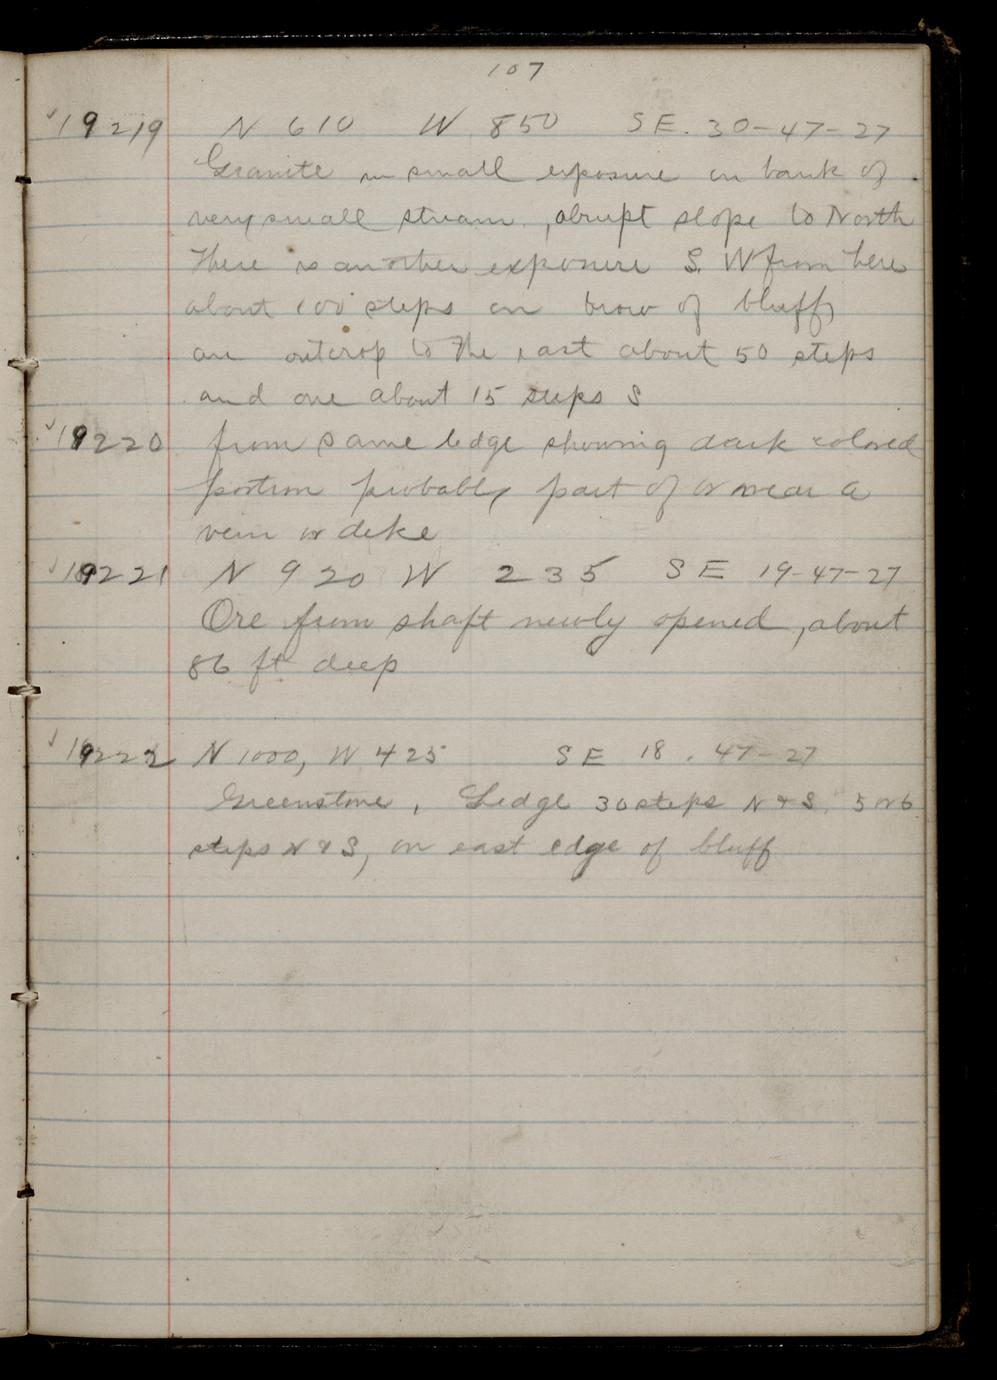 107
19219 N 610 W 850 SE. 30-47-27
Granite in small exposure on bank of
very small stream, abrupt slope to North
There is another exposure S. W from here
about 100 steps on brow of bluff
an outcrop to the east about 50 steps
and one about 15 steps S
19220 from same ledge showing dark colored
portion probably part of or near a
vein or deke
19221 N 920 W 235 SE 19-47-27
Ore from shaft newly opened, about
86 ft deep
19222 N 1000, W 425 SE 18. 47-27
Greenstone, Ledge 30 steps N & S. 5 or 6
steps N & S, on east edge of bluff